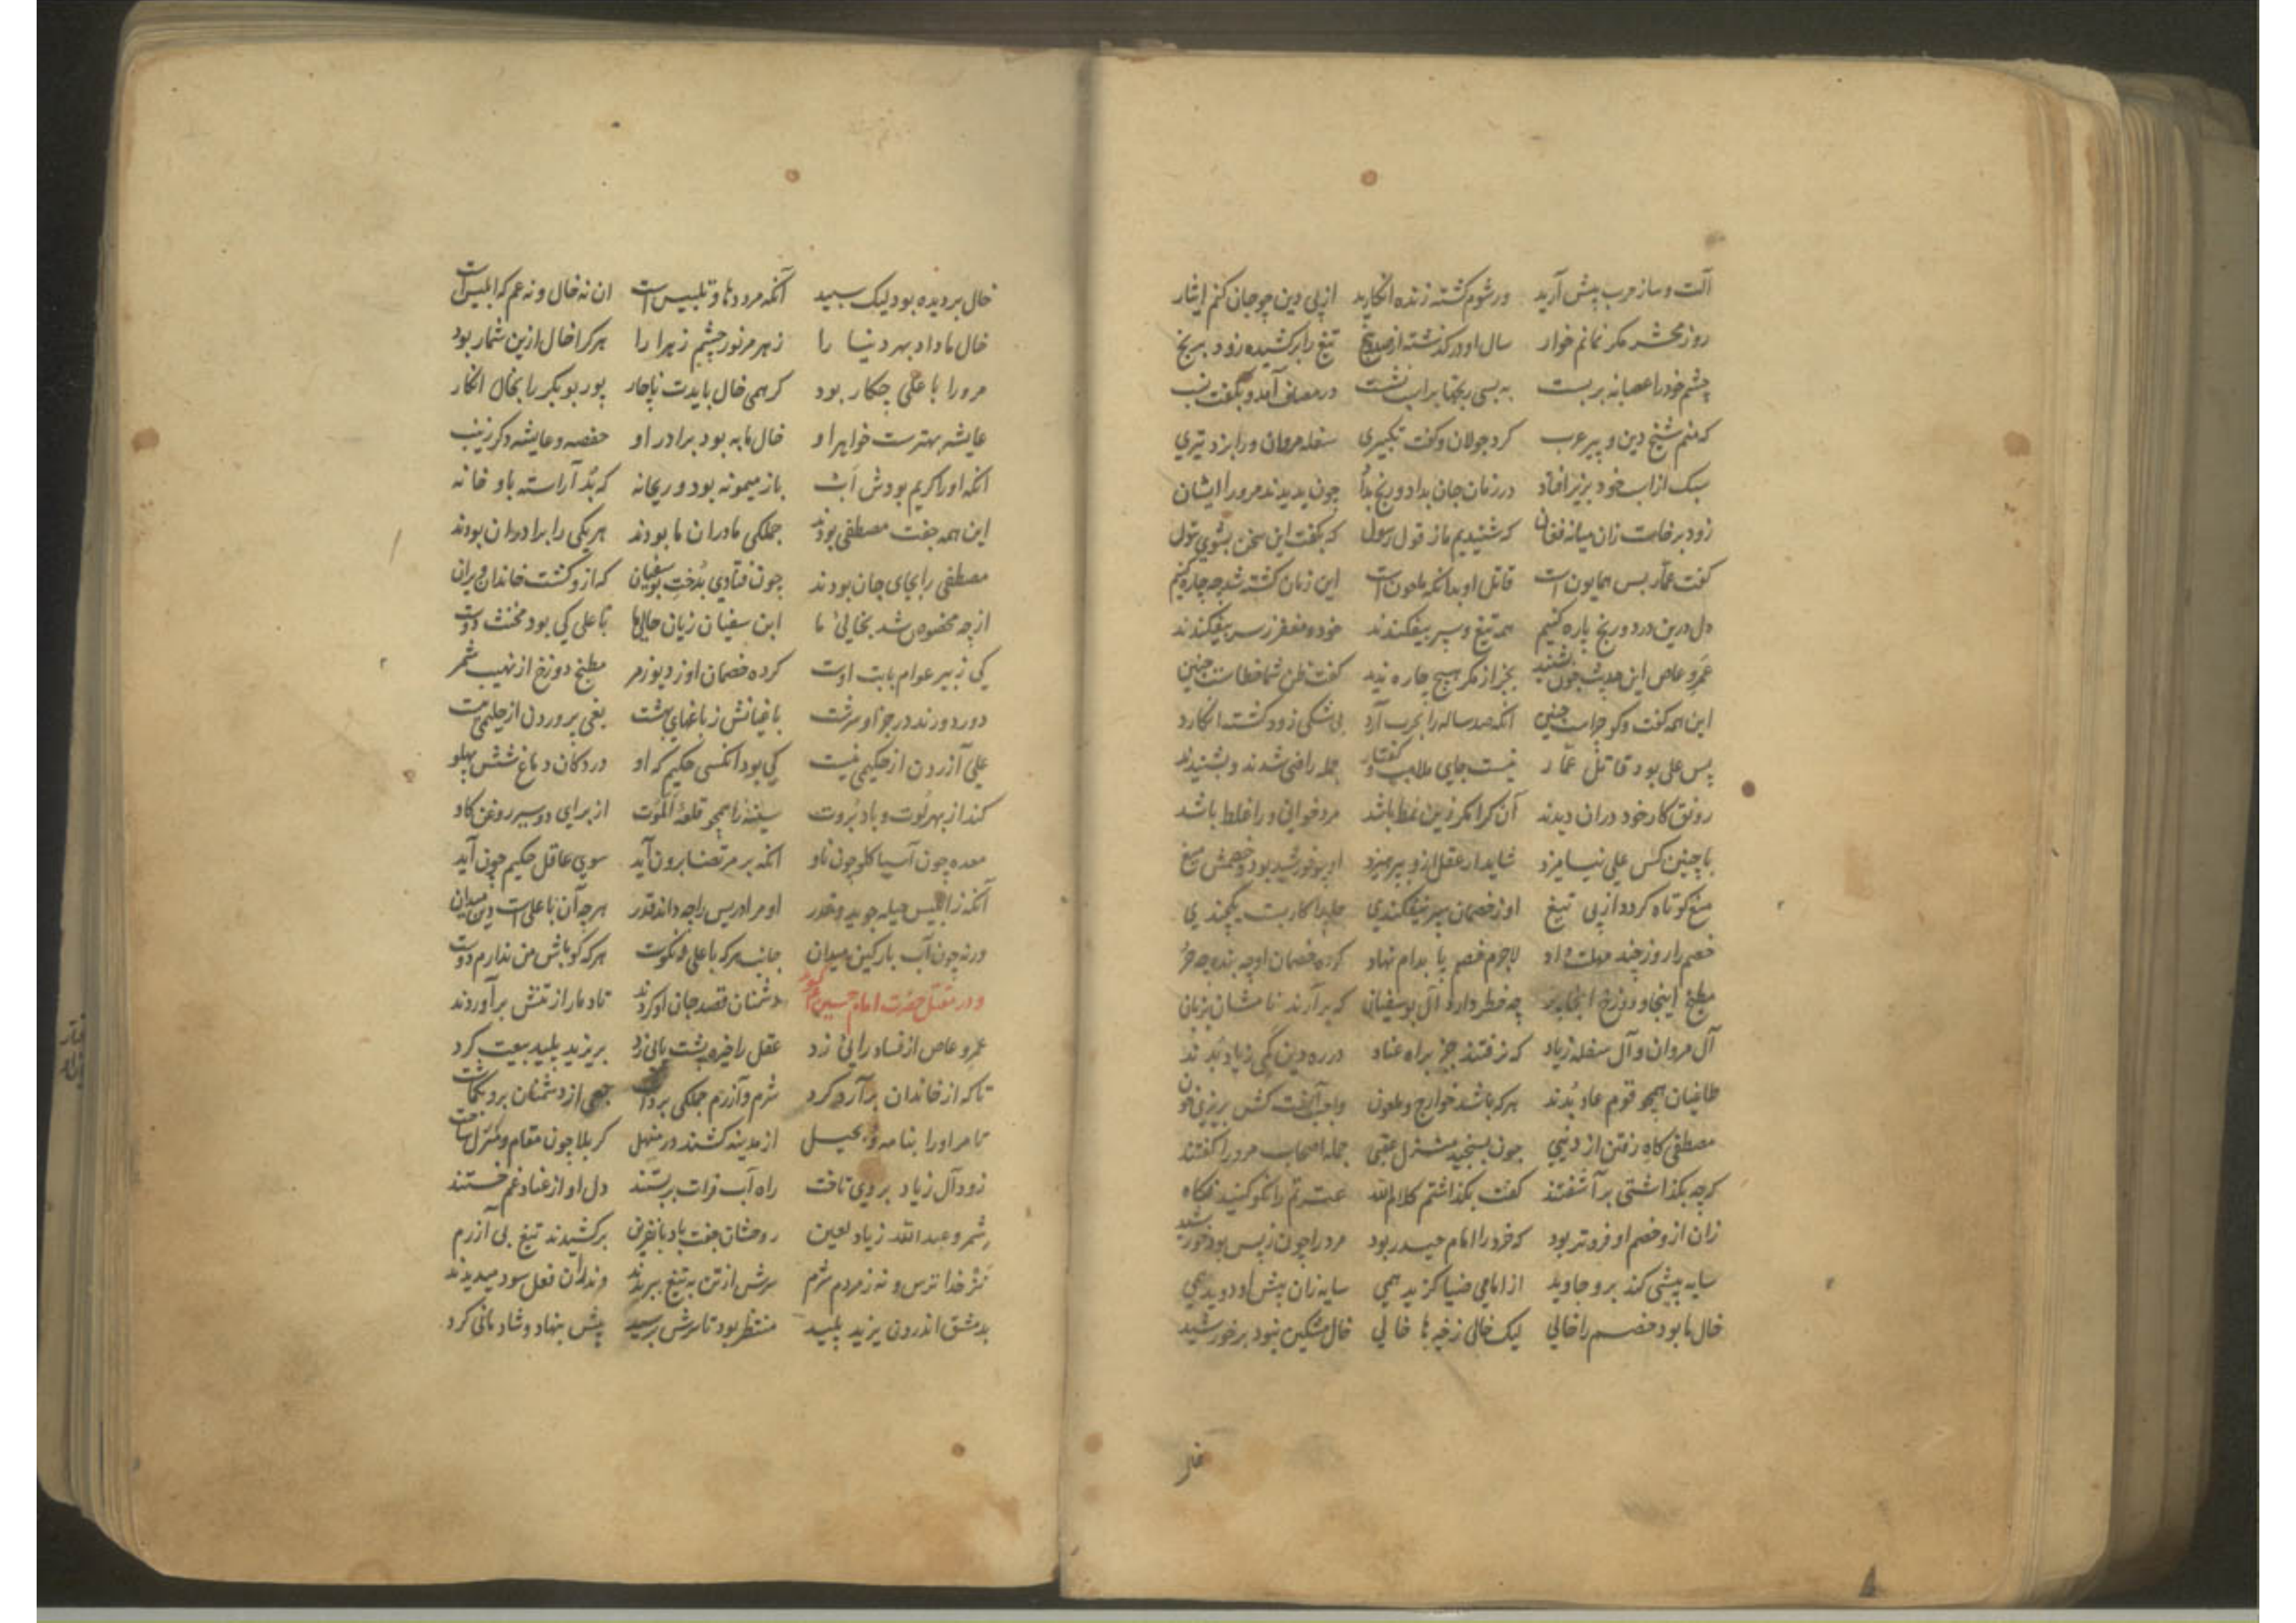 آلت و ساز حرب پیش آرید ورشوم کشته زنده انکارید از پی دین چو جان کنم ایثار
روز محشر مکر نمانم خوار سال او در کذشته از صد و پنج تیغ را برکشیده زود برنج
چشم خود را عصابه بربست به بسی رنجها بر اسب نشست در مصاف آمد و بکفت نسب
که منم شیخ دین و پیر عرب کرد جولان و کفت تکبیری سفله مروان ورا بزد تیری
سبک از اسب خود بزیر افتاد در زمان جان بداد و رنج بداد چون بدیدند مرورا ایشان
زود برخاست زان میانه فغان که شنیدیم ما ز قول رسول که بکفت این سخن بشوی بتول
کفت عمار بس همایون است قاتل او بدانکه ملعون است این زمان کشته شد چه چاره کنیم
دل درین درد و رنج پاره کنیم همه تیغ و سپر بیفکندند خود و مغفر ز سر بیفکندند
عمرو عاص این حدیث چون بشنید بجز از مکر هیچ چاره ندید کفت ظن شما خطاست چنین
این همه کفت و کو چراست چنین آنکه صد ساله را بحرب آرد بی شکی زود کشته انکارد
پس علی بود قاتل عمار نیست جای ملامت و کفتار جمله راضی شدند و بشنیدند
رونق کار خود در آن دیدند آن کرا مکر زین نمط باشد مرد خوانی ورا غلط باشد
با چنین کس علی نیامیزد شاید ار عقل ازو بپرهیزد او چو خورشید بود و خصمش میغ
میغ کوتاه کرد از پی تیغ او ز خصمان سپر نیفکندی حلم را کار بست یکچندی
خصم را روز چند مهلت داد لاجرم خصم پا بدام نهاد کرده خصمان او چه بنده چه حر
مطبخ اینجا و دوزخ آنجا پر چه خطر دارد آل بوسفیان که برآرند نامشان بزبان
آل مروان و آل سفله زیاد که نرفتند جز براه عناد در ره دین کمی زیاد بدند
طاغیان همچو قوم عاد بدند هر که باشد خوارج و ملعون واجب آنست کش بریزی خون
مصطفی کاه رفتن از دنیی چون بسنجید منزل عقبی جمله اصحاب مرورا کفتند
کرچه بکذاشتی برآشفتند کفت بکذاشتم کلام الله عترتم را نکو کنید نکاه
زان ازو خصم او فروتر بود که خرد را امام حیدر بود مرد را چون ز پس بود خورشید
سایه پیشی کند برو جاوید از امامی ضیا کزید همی سایه زان پیش او دوید همی
خال ما بود خصم را خالی لیک خالی ز خیرها خالی خال مشکین نبود بر خورشید
خال بر دیده بود لیک سپید آنکه مرد دها و تلبیس است آن نه خال و نه عم که ابلیس است
خال ما داد بهر دنیا را زهر مر نور چشم زهرا را هر کرا خال ازین شمار بود
مرورا با علی چکار بود کر همی خال بایدت ناچار پور بوبکر را بخال انکار
عایشه بهترست خواهر او خال ما به بود برادر او حفصه و عایشه دکر زینب
آنکه او را کریم بودش اب باز میمونه بود و ریحانه که بد آراسته باو خانه
این همه جفت مصطفی بودند جملکی مادران ما بودند هر یکی را برادران بودند
مصطفی را بجای جان بودند چون فتادی بدخت بوسفیان که ازو کشت خاندان ویران
از چه مخصوص شد بخالی ما ابن سفیان زیان حالی ما با علی کی بود مخنث دوست
کی زبیر عوام بابت اوست کرده خصمان او ز دیو زمر مطبخ دوزخ از نهیب شمر
دور دورند در جزا و سرشت باغیانش ز باغهای بهشت بغی پروردن از حلیمی نیست
علی آزردن از حکیمی نیست کی بود آنکسی حکیم که او در دکان دماغ شش پهلو
کند از بهر لوت و باد بروت سینه را همچو قلعه الموت از برای دو سیر روغن کاو
معده چون آسیا کلو چون ناو آنکه بر مرتضا برون آید سوی عاقل حکیم چون آید
آنکه ز ابلیس حیله جوید و غدر او مر ادریس را چه داند قدر هر چه آن با علی است دین میدان
ورنه چون آب بارکین میدان جانب هر که با علی نه نکوست هر که کو باش من ندارم دوست
و در مقتل حضرت امام حسین دشمنان قصد جان او کردند تا دمار از تنش برآوردند
عمرو عاص از فساد رائی زد عقل را خیره پشت پائی زد بر یزید پلید بیعت کرد
تا که از خاندان برآرد کرد شرم و آزرم جملکی برداشت جمعی از دشمنان برو بکماشت
تا مر او را بنامه و بحیل از مدینه کشند در منهل کربلا چون مقام و منزل ساخت
زود آل زیاد بر وی تاخت راه آب فرات بربستند دل او از عناد غم خستند
شمر و عبدالله زیاد لعین روحشان جفت باد با نفرین برکشیدند تیغ بی آزرم
نز خدا ترس و نه ز مردم شرم سرش از تن به تیغ ببریدند وندران فعل سود میدیدند
بدمشق اندرون یزید پلید منتظر بود تا سرش برسید پیش بنهاد و شادمانی کرد